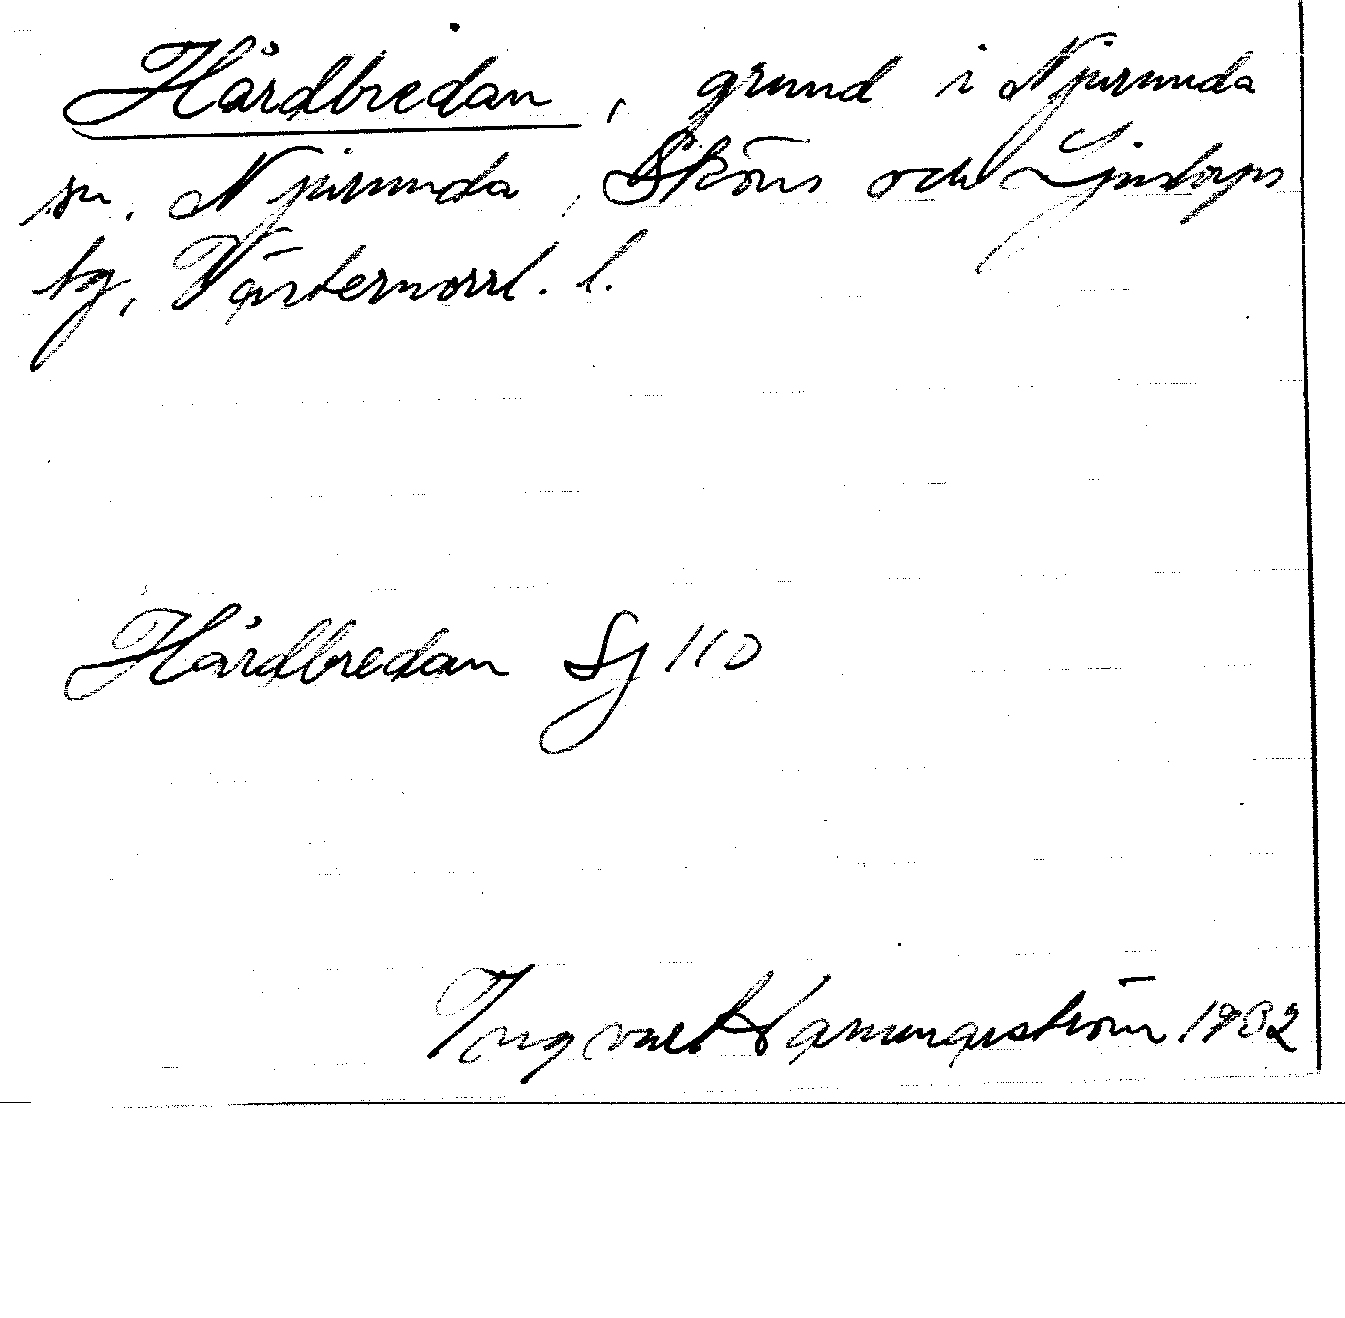 Hårdbredan, grund i Njurunda
sn. Njurunda, Sköns och Ljustorps
tg, Västernorrl. l.
Hårdbredan Sj 110
Ingvar 1932